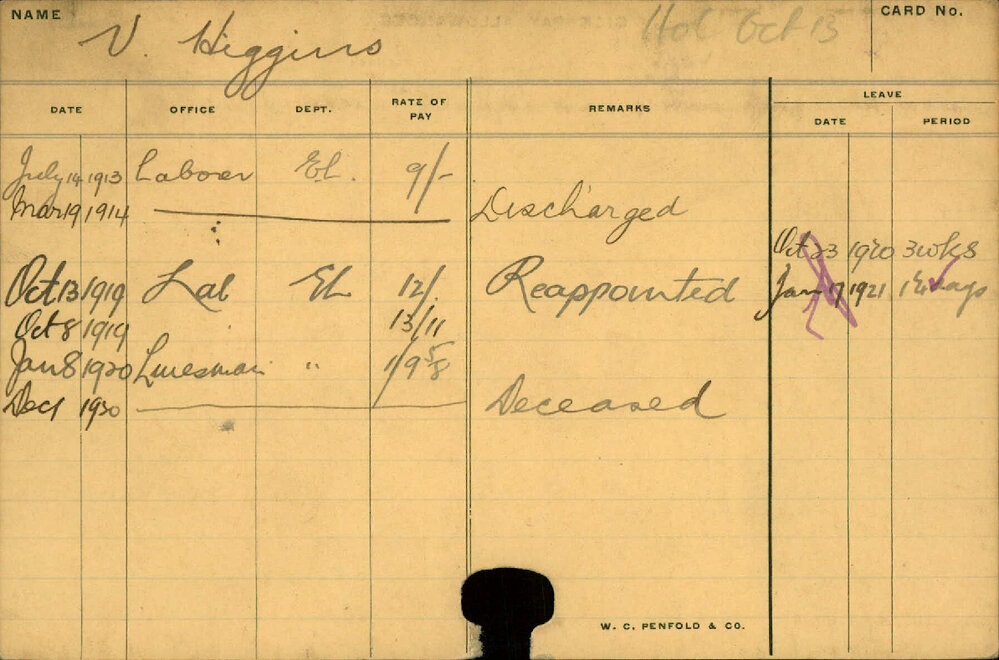 NAME V. Higgins Hol Oct 13 CARD No.
DATE OFFICE DEPT. RATE OF PAY REMARKS LEAVE
DATE PERIOD
July 14 1913 Laborer El. 9/-
Mar 19 1914 Discharged
Oct 23 1920 3 wks
Oct 13 1919 Lab El 12/. Reappointed Jan 17 1921 days
Oct 8 1919 13/11
Jan 8 1920 Linesman " 1/9 5/8
Dec 1 1930 Deceased
W. C. PENFOLD & CO.